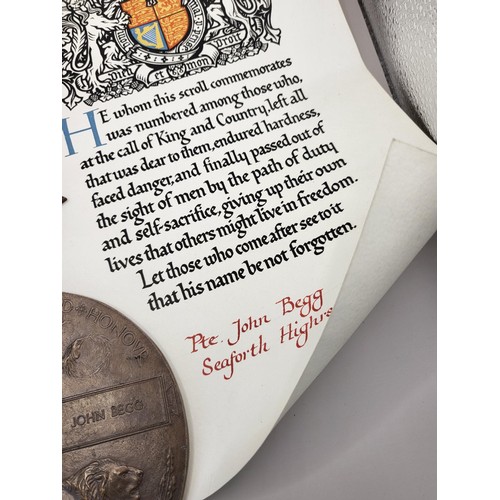 Dieu et mon
HE whom this scroll commemorates
was numbered among those who,
at the call of King and Country, left all
that was dear to them, endured hardness,
faced danger, and finally passed out of
the sight of men by the path of duty
and self-sacrifice, giving up their own
lives that others might live in freedom.
Let those who come after see to it
that his name be not forgotten.
Pte. John Begg
Seaforth Highrs
HONOUR
JOHN BEGG